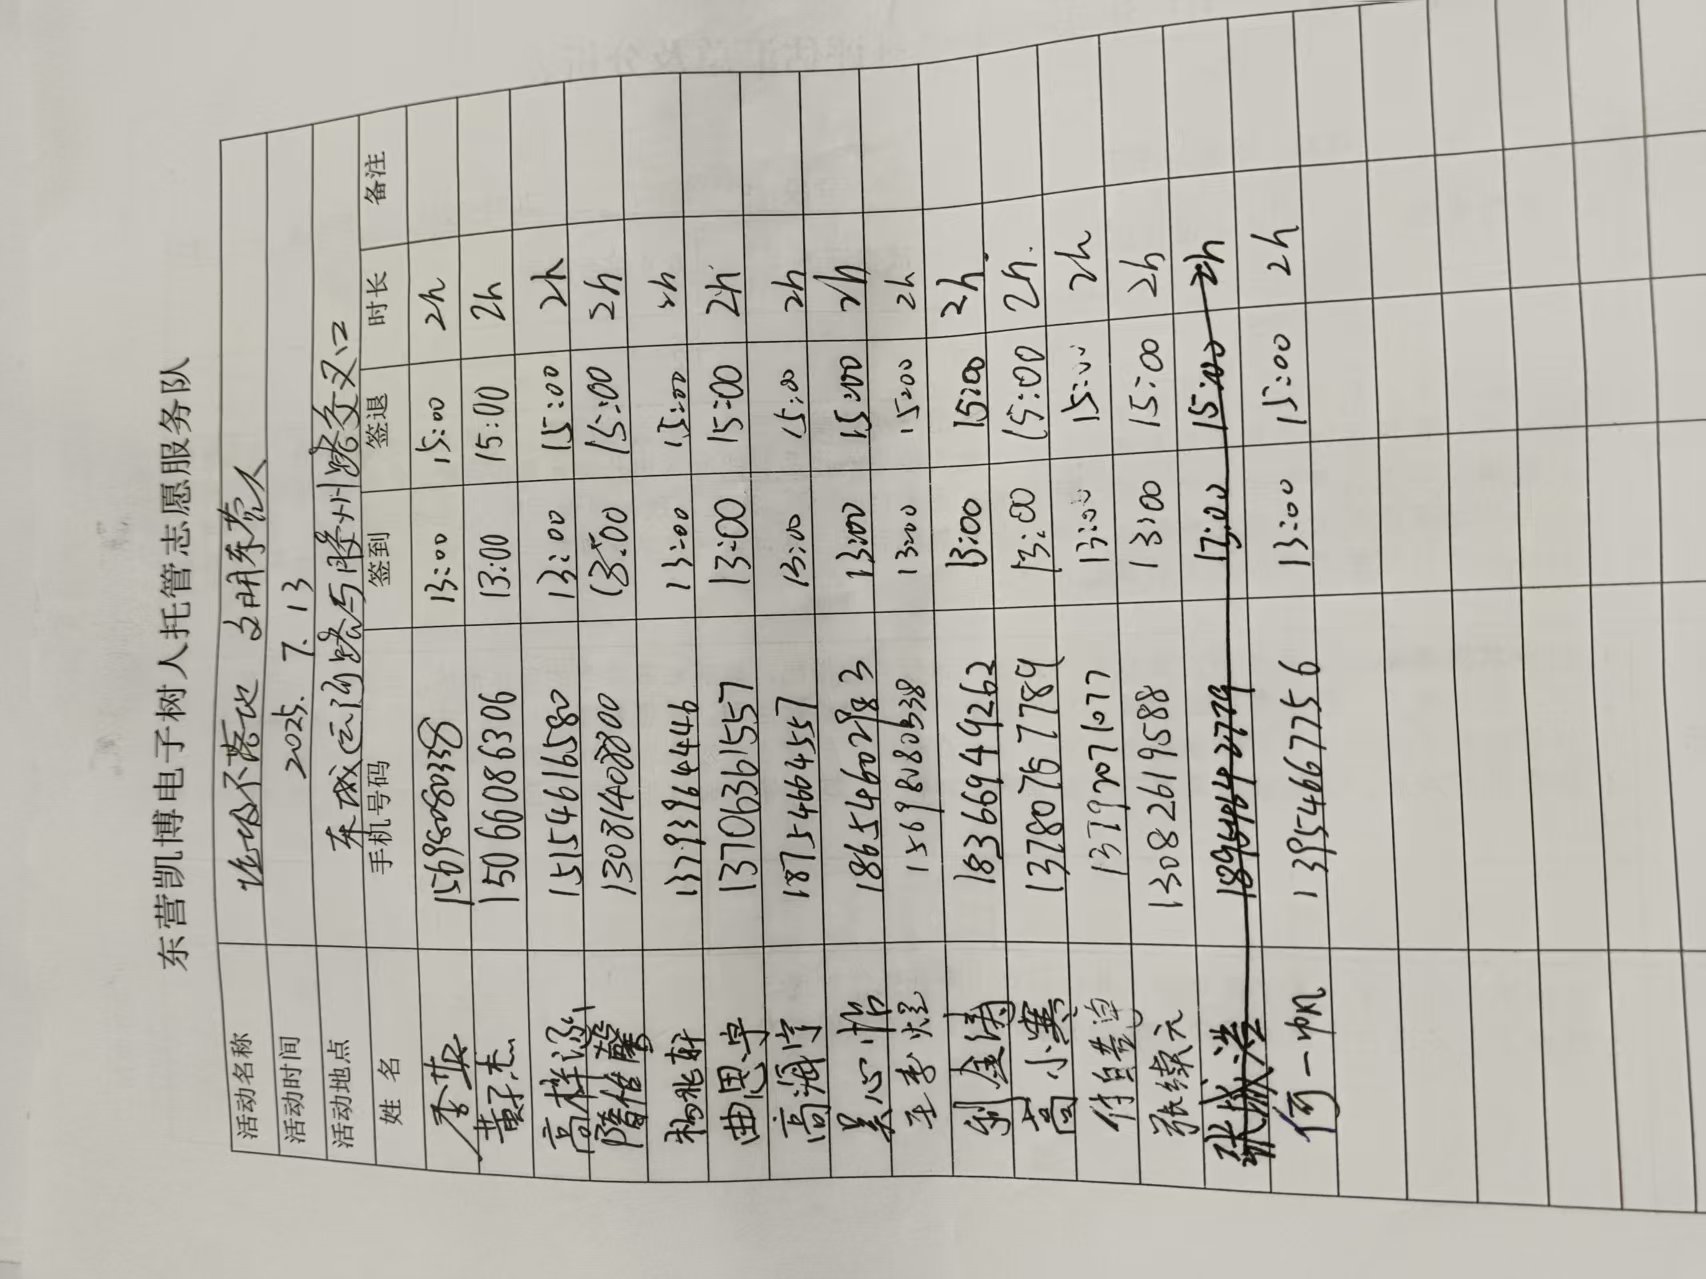 东营凯博电子树人托管志愿服务队
活动名称 垃圾不落地 文明东营人
活动时间 2025.7.13
活动地点 东城运河路与胶州路交叉口
姓 名 手机号码 签到 签退 时长 备注
李英 15698080338 13:00 15:00 2h
黄子杰 15066086306 13:00 15:00 2h
高梓涵 15154616580 13:00 15:00 2h
隋佳馨 13:00 15:00 2h
杨兆轩 13793964446 13:00 15:00 2h
曲思宇 13706361557 13:00 15:00 2h
高海宁 18754664557 13:00 15:00 2h
吴心怡 13:00 15:00 2h
王李煜 13:00 15:00 2h
刘金雨 18366949262 13:00 15:00 2h
高小寒 13780767789 13:00 15:00 2h
13792071077 13:00 15:00 2h
张续元 13082619588 13:00 15:00 2h
张城浩 15:00 2h
何一帆 13954667756 13:00 15:00 2h